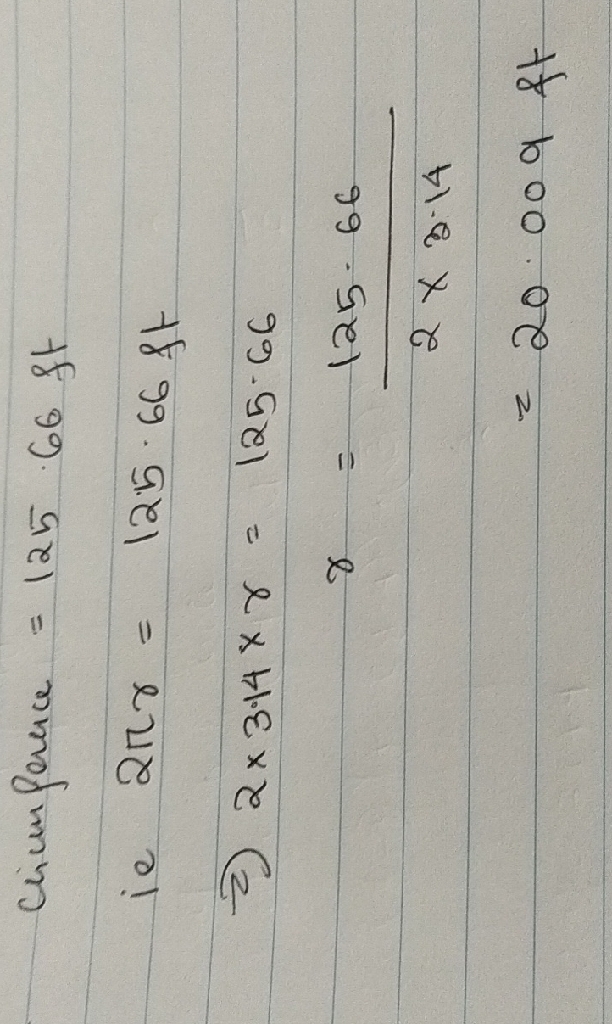 Circumference = 125.66 ft
ie 2πr = 125.66 ft
⇒ 2 × 3.14 × r = 125.66
r = 125.66
2 × 3.14
= 20.009 ft